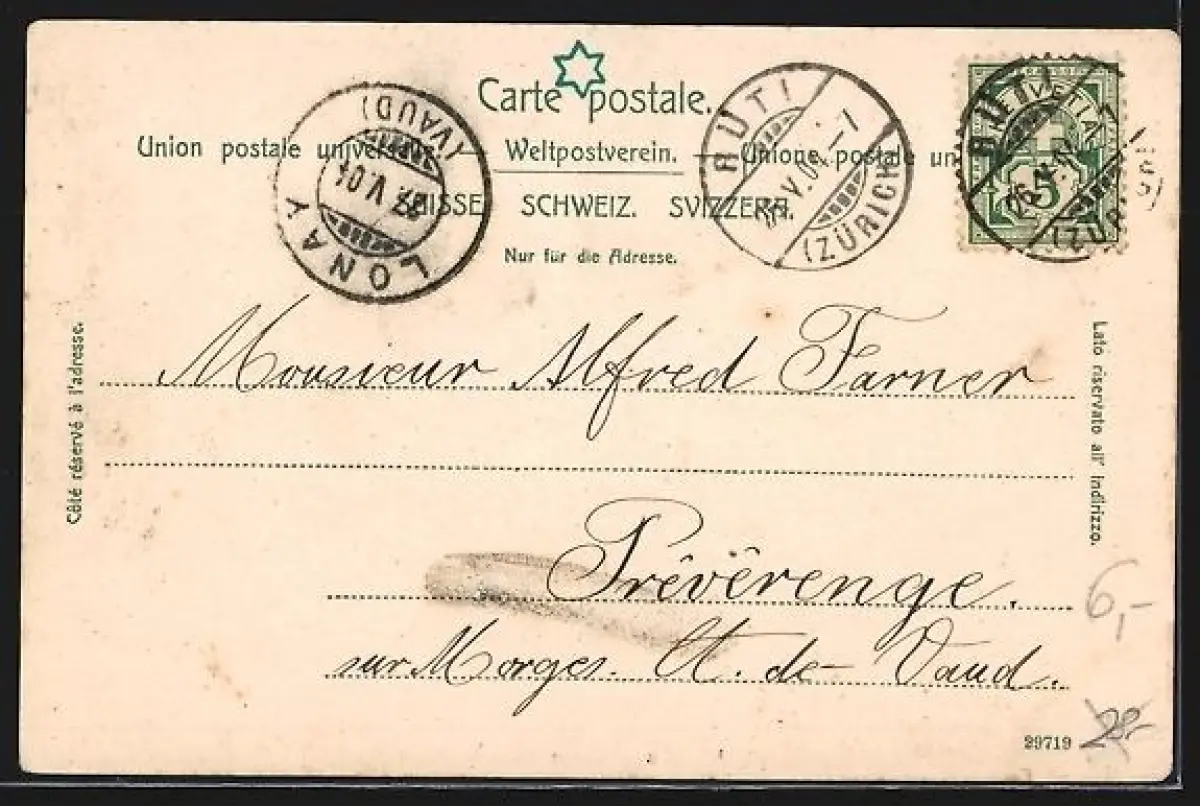 Carte postale.
Union postale universelle. — Weltpostverein. — Unione postale un
SUISSE. SCHWEIZ. SVIZZERA.
Nur für die Adresse.
LONAY
(VAUD)
27.V.04
RÜTI
(ZÜRICH)
V.04.-7
HELVETIA
5
RÜTI
26.V.
Côté réservé à l'adresse.
Lato riservato all' indirizzo.
Monsieur Alfred Farner
Prévérenge.
sur Morges. Ct. de Vaud.
6,-
29719
28.-